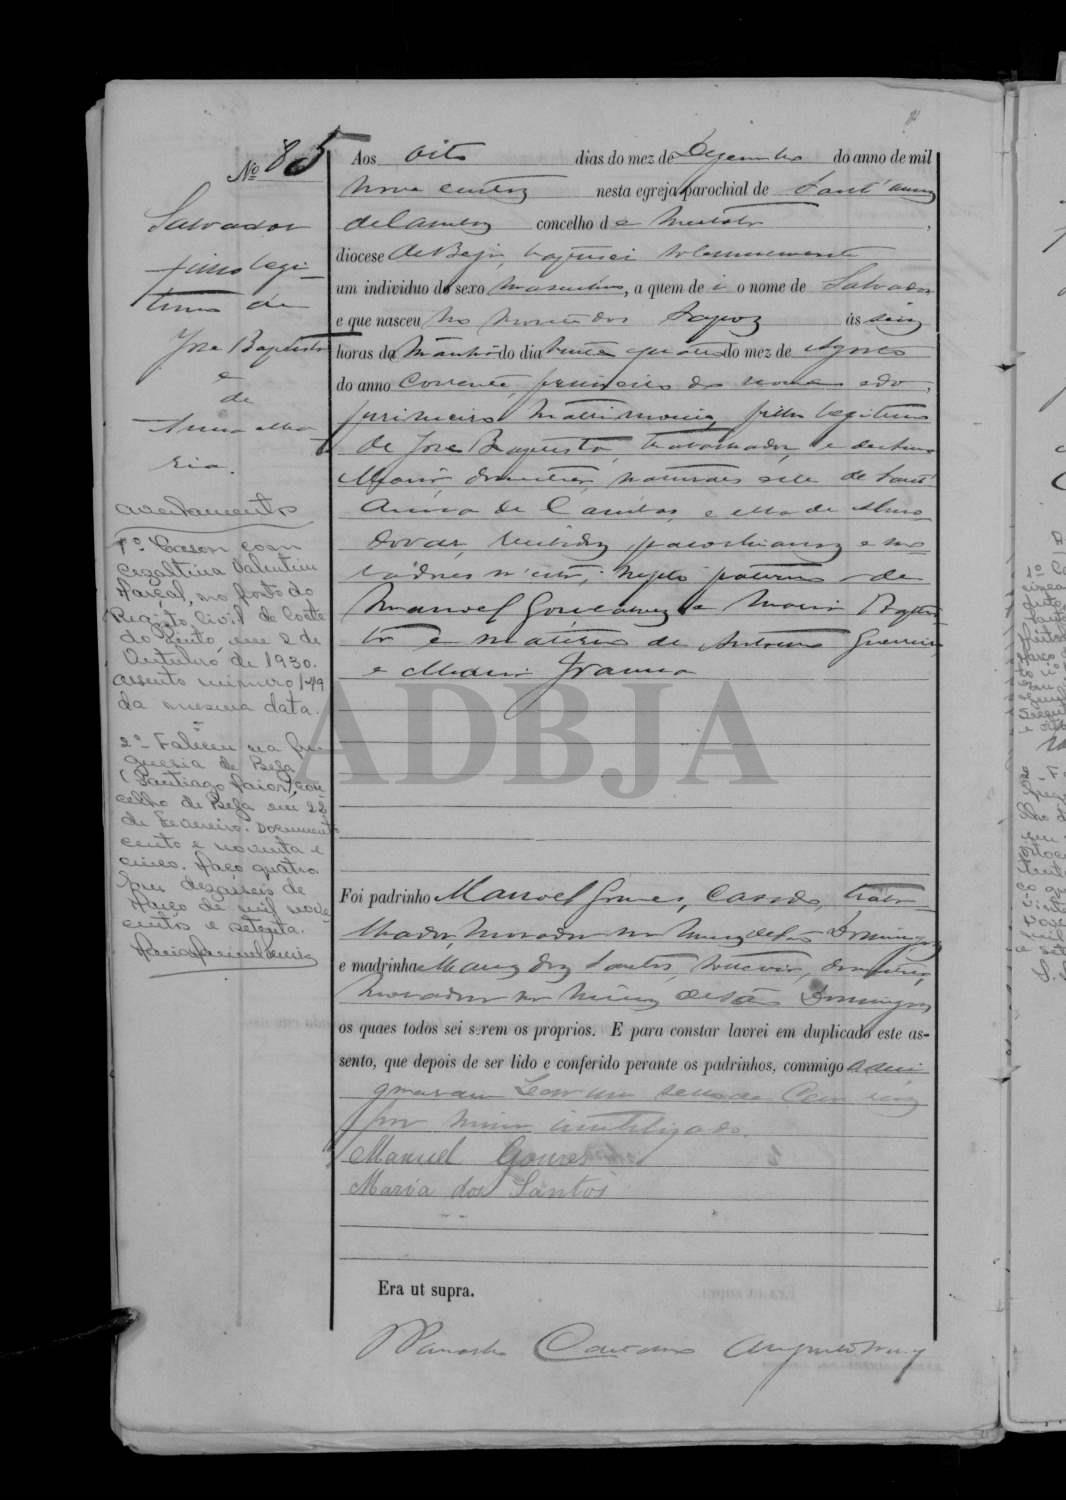 Nº 85
Salvador
filho legi-
timo de
Jose Baptista
e
de
Anna Ma-
ria.
Averbamentos
1º Casou com
Cezaltina Valentim
no posto do
Registo Civil de Corte
do Pinto, em 2 de
Outubro de 1930.
assento numero 149
da mesma data.
2º Faleceu na fre-
guesia de Beja
(Santiago Maior) con-
celho de Beja em 22
de Fevereiro. Documento
cento e noventa e
cinco. Maço quatro
dezasseis de
Março de mil nove-
centos e setenta.
Aos oito dias do mez de Dezembro do anno de mil
nove centos nesta egreja parochial de Sant'Anna
de Cambas concelho de Mertola,
diocese de Beja, baptisei solemnemente
um individuo do sexo masculino, a quem dei o nome de Salvador
e que nasceu no monte dos ás seis
horas da manhã do dia vinte quatro do mez de Agosto
do anno corrente, primeiro do nome e do
primeiro matrimonio, filho legitimo
de Jose Baptista, trabalhador, e de Anna
Maria, domestica, naturaes elle de Sant'
Anna de Cambas, e ella de Almo-
dovar, recebidos, parochianos e mo-
radores n'esta; neto paterno de
Manoel Gonçalves e Maria Baptis-
ta e materno de Antonio Guerreiro
e Maria Joanna
ADBJA
Foi padrinho Manoel Gomes, casado, traba-
lhador, morador na Mina de São Domingos
e madrinha Maria dos Santos, solteira, domestica,
moradora na Mina de São Domingos
os quaes todos sei serem os proprios. E para constar lavrei em duplicado este as-
sento, que depois de ser lido e conferido perante os padrinhos, commigo assi-
gnaram. Leva um sello de cem reis
por mim inutilizado.
Manuel Gomes
Maria dos Santos
Era ut supra.
O Parocho Caetano